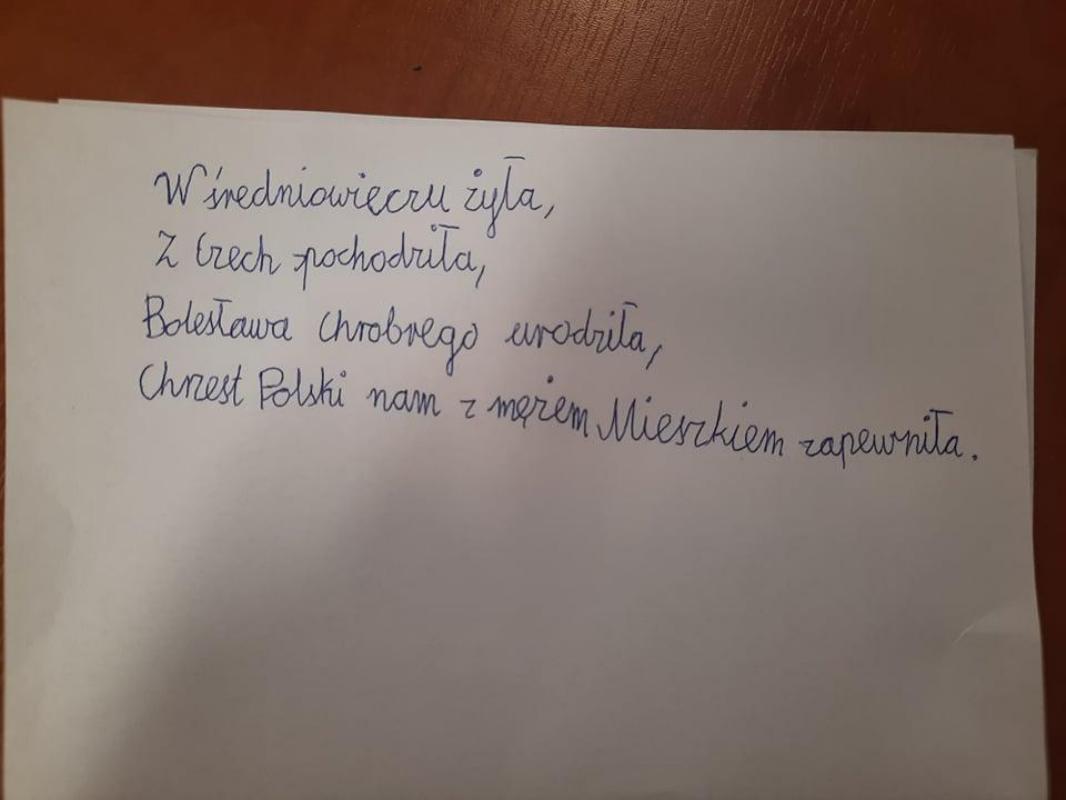 W średniowięczu żyła,
Z Czech pochodziła,
Bolesława Chrobrego urodziła,
Chrzest Polski nam z mężem Mieszkiem zapewniła.